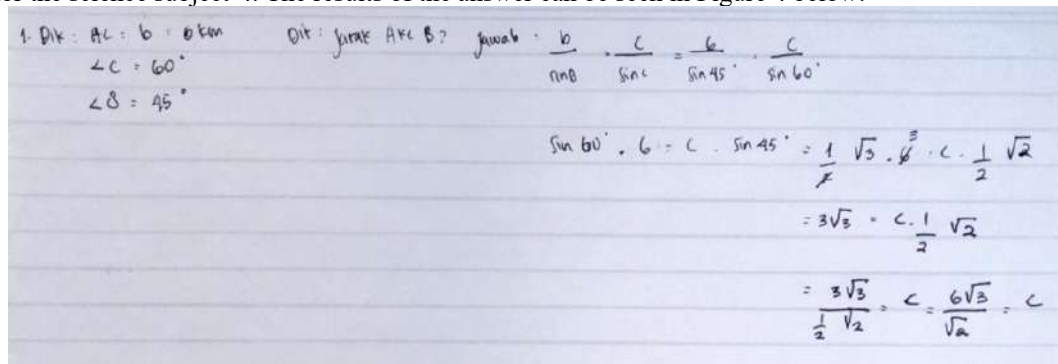 1. Dik : AC = b = 6 km Dit : Jarak A ke B? Jawab : b/sin B = c/sin C = 6/sin 45° = c/sin 60°
∠C = 60°
∠B = 45°
Sin 60° . 6 = c . sin 45° = 1/2 √3 . 6 3 = c . 1/2 √2
= 3√3 = c . 1/2 √2
= 3√3 / 1/2 √2 = c = 6√3/√2 = c